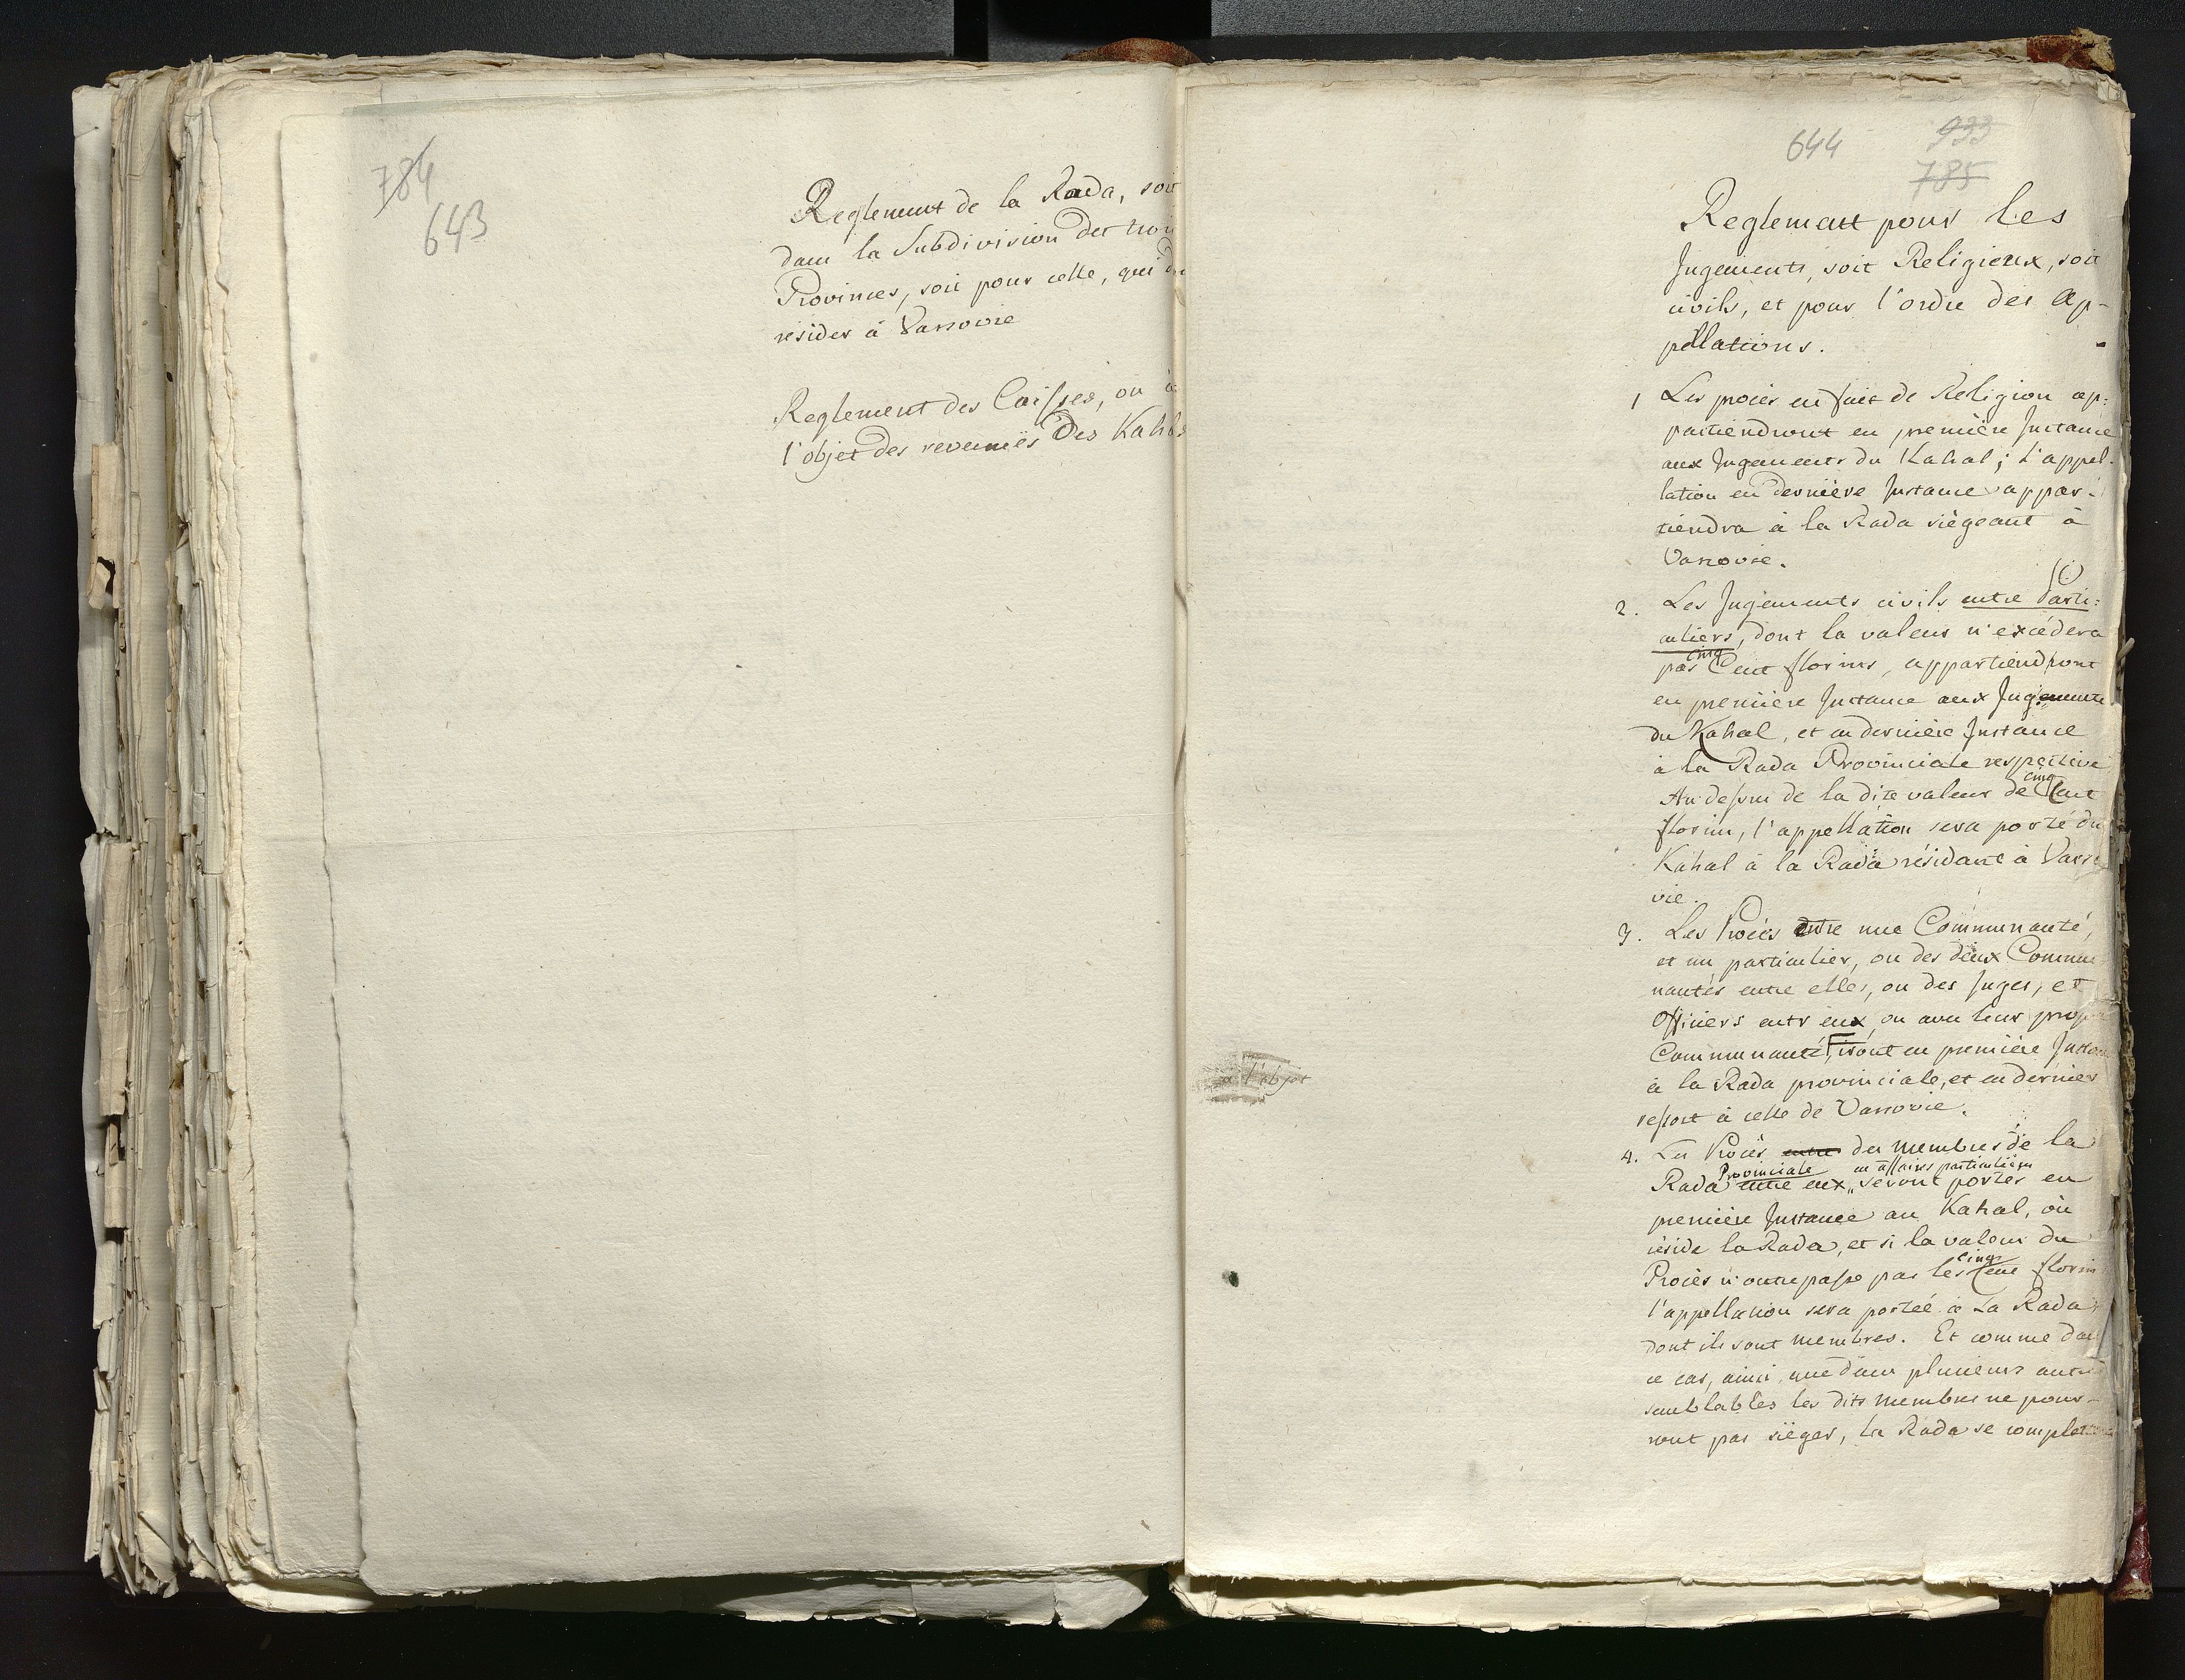 784
643
Reglement de la Rada, soit
dans la Subdivision des trois
Provinces, soit pour celle, qui
resider à Varsovie
Reglement des Caisses, ou à
l'objet des revenues des Kahals
644
933
785
Reglement pour les
Jugements, soit Religieux, soit
civils, et pour l'ordre des ap-
pellations.
1 Les procès en fait de Religion ap=
partiendront en première Instance
aux Jugements du Kahal; L'appel-
lation en dernière Instance appar-
tiendra à la Rada siègeant à
Varsovie.
2. Les Jugements civils entre Parti=
culiers, dont la valeur n'excédera
pas cinq Cent florins, appartiendront
en première Instance aux Jugements
du Kahal, et en dernière Instance
à la Rada Provinciale respective
Au dessus de la dite valeur de cinq Cent
florins, l'appellation sera porté du
Kahal à la Rada résidant à Varso
vie.
3. Les Procès entre une Communauté,
et un particulier, ou des deux Commu
nautés entre elles, ou des Juges, et
Officiers entr eux, ou avec leur propre
Communauté, iront en première Instance
à la Rada provinciale, et en dernier
ressort à celle de Varsovie.
à l'objet
4. Les Procès entre des membres de la
Rada Provinciale entre eux, en affaires particulières seront portés en
première Instance au Kahal, où
réside la Rada, et si la valeur du
Procès n'outrepasse pas les cinq Cent florins
l'appellation sera portée à La Rada
dont ils sont membres. Et comme dans
ce cas, ainsi que dans plusieurs autres
semblables les dits membres ne pour-
ront pas siéger, la Rada se completera